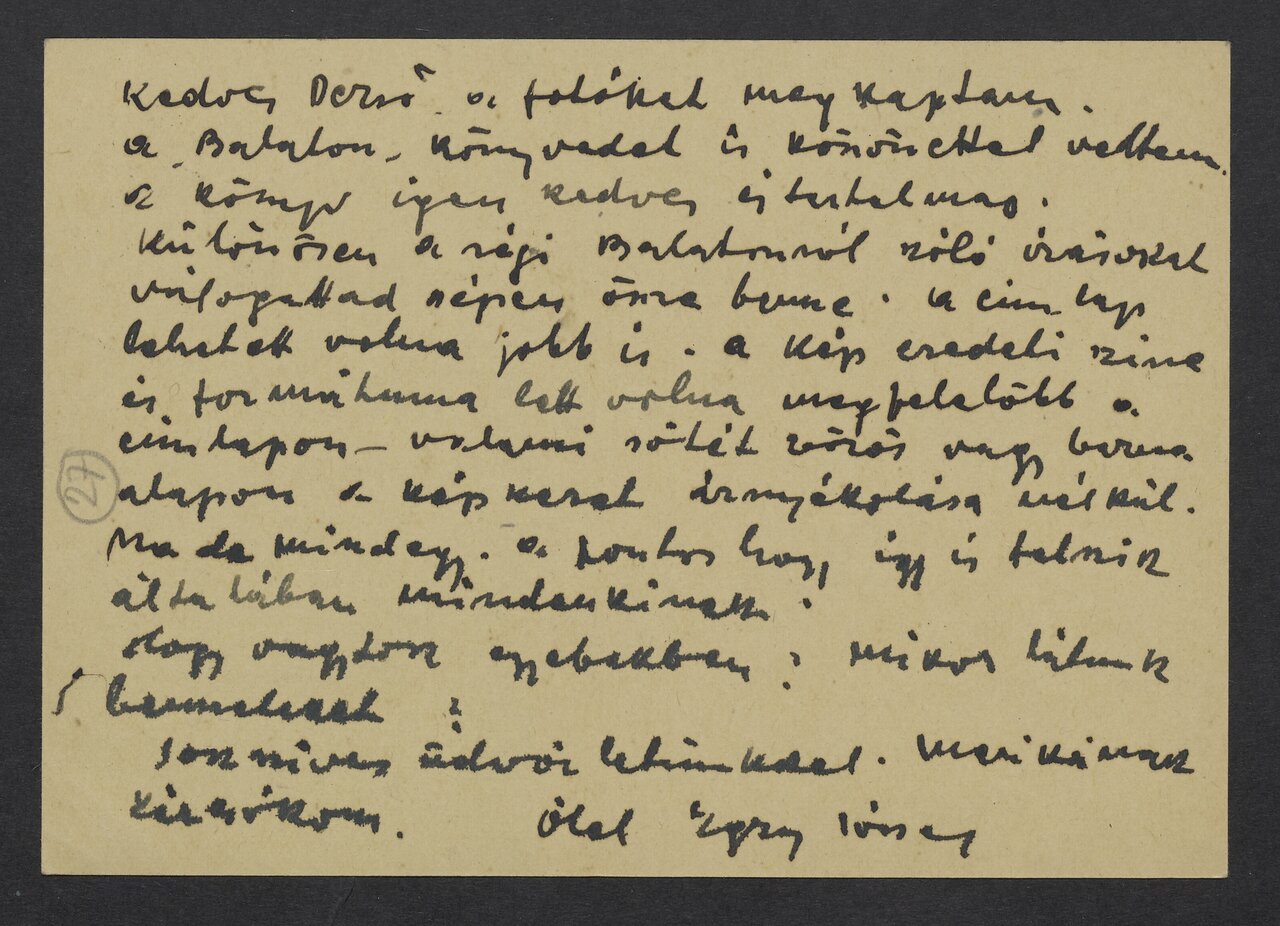 Kedves Dezső a fotókat megkaptam.
a Balaton-könyvedet is köszönettel vettem.
a könyv igen kedves és tartalmas.
Különösen a régi Balatonról szóló írásokat
válogattad szépen össze benne. a címlap
lehetett volna jobb is. a kép eredeti színe
és formátuma lett volna megfelelőbb a
címlapon – valami sötét vörös vagy barna
alapon a képkeret árnyékolása nélkül.
27
Na de mindegy. a fontos hogy így is tetszik
általában mindenkinek.
Hogy vagytok egyebekben? Mikor látunk
benneteket?
Sok szíves üdvözletünkkel. Marikának
kézcsókom. Ölel Egry József